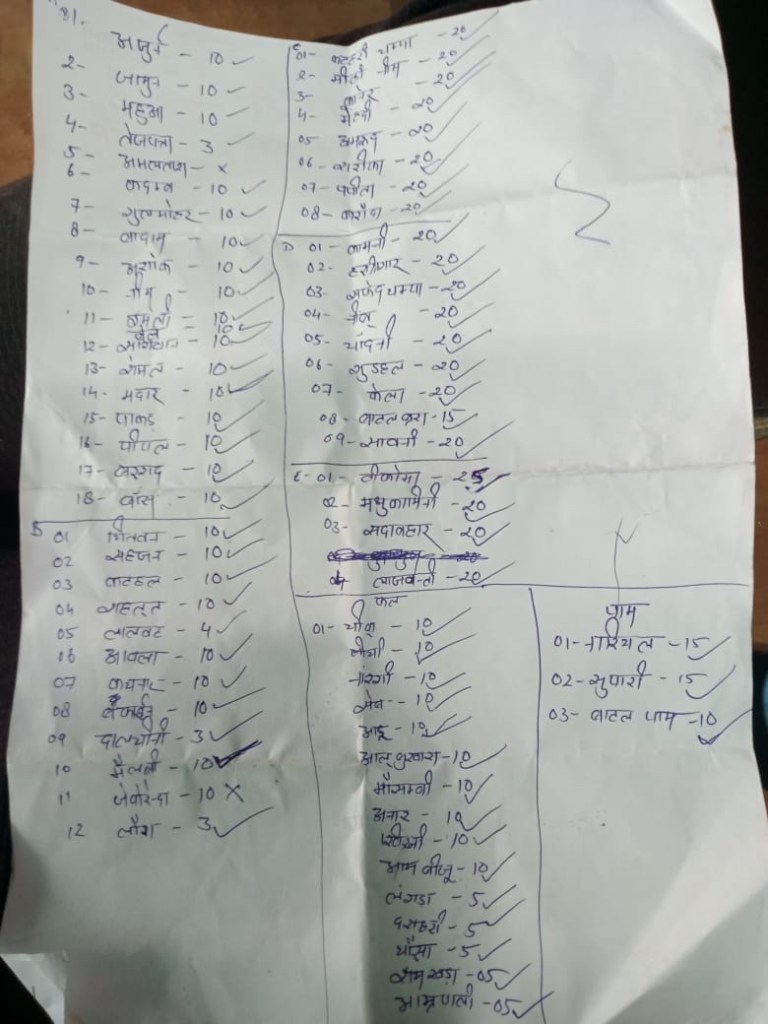 01. अर्जुन - 10 ✓
2- जामुन - 10 ✓
3- महुआ - 10 ✓
4- तेजपत्ता - 3 ✓
5- अमलतास - x
6- कदम्ब - 10 ✓
7- गुलमोहर - 10 ✓
8- बादाम - 10 ✓
9- अशोक - 10 ✓
10- नीम - 10 ✓
11- इमली - 10 ✓
बेल - 10 ✓
12- सागवान - 10 ✓
13- सेमल - 10 ✓
14- मदार - 10 ✓
15- पाकड़ - 10 ✓
16- पीपल - 10 ✓
17- बरगद - 10 ✓
18- बाँस - 10 ✓
B
01 - 10 ✓
02 सहजन - 10 ✓
03 कटहल - 10 ✓
04 शहतूत - 10 ✓
05 - 4 ✓
06 आवला - 10 ✓
07 कचनार - 10 ✓
08 - 10 ✓
09 दालचीनी - 3 ✓
10 - 10 ✓
11 - 10 x
12 लौंग - 3 ✓
01- कटहरी चम्पा - 20 ✓
2- मीठी नीम - 20 ✓
3- कनेर - 20 ✓
4- - 20 ✓
05 अमरूद - 20 ✓
06- शरीफा - 20 ✓
07- पपीता - 20 ✓
08- करौंदा - 20 ✓
D 01- कामनी - 20 ✓
02- हरसिंगार - 20 ✓
03- सफेद चम्पा - 20 ✓
04- - 20 ✓
05- चाँदनी - 20 ✓
06- गुडहल - 20 ✓
07- केला - 20 ✓
08- बाटल ब्रश - 15 ✓
09- सावनी - 20 ✓
E- 01- टीकोमा - 25 ✓
02- मधुकामिनी - 20 ✓
03- सदाबहार - 20 ✓
04 लाजवन्ती - 20 ✓
फल
01- चीकू - 10 ✓
लीची - 10 ✓
नारंगी - 10 ✓
सेब - 10 ✓
आडू - 10 ✓
आलू बुखारा - 10 ✓
मौसम्बी - 10 ✓
अनार - 10 ✓
- 10 ✓
आम बीजू - 10 ✓
लंगडा - 5 ✓
दशहरी - 5 ✓
चौसा - 5 ✓
- 05 ✓
आम्रपाली - 05 ✓
पाम
01- नारियल - 15 ✓
02- सुपारी - 15 ✓
03- बाटल पाम - 10 ✓